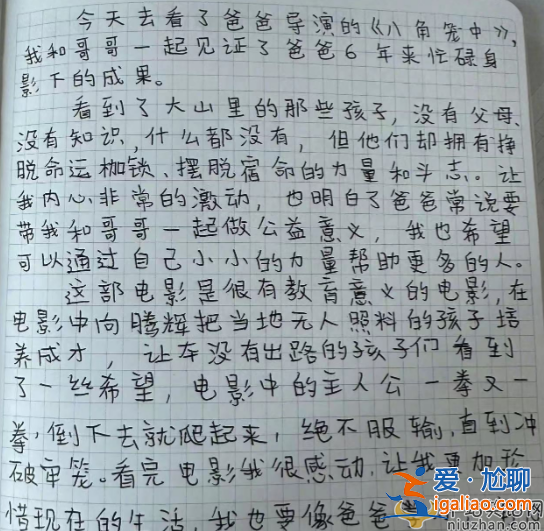 今天去看了爸爸导演的《八角笼中》,
我和哥哥一起见证了爸爸6年来忙碌身
影下的成果。
看到了大山里的那些孩子,没有父母、
没有知识,什么都没有,但他们却拥有挣
脱命运枷锁、摆脱宿命的力量和斗志。让
我内心非常的激动,也明白了爸爸常说要
带我和哥哥一起做公益意义,我也希望
可以通过自己小小的力量帮助更多的人。
这部电影是很有教育意义的电影,在
电影中向腾辉把当地无人照料的孩子培
养成才,让本没有出路的孩子们看到
了一丝希望,电影中的主人公一拳又一
拳,倒下去就爬起来,绝不服输,直到冲
破牢笼。看完电影我很感动,让我更加珍
惜现在的生活,我也要像爸爸
爱·尬聊
igaliao.com